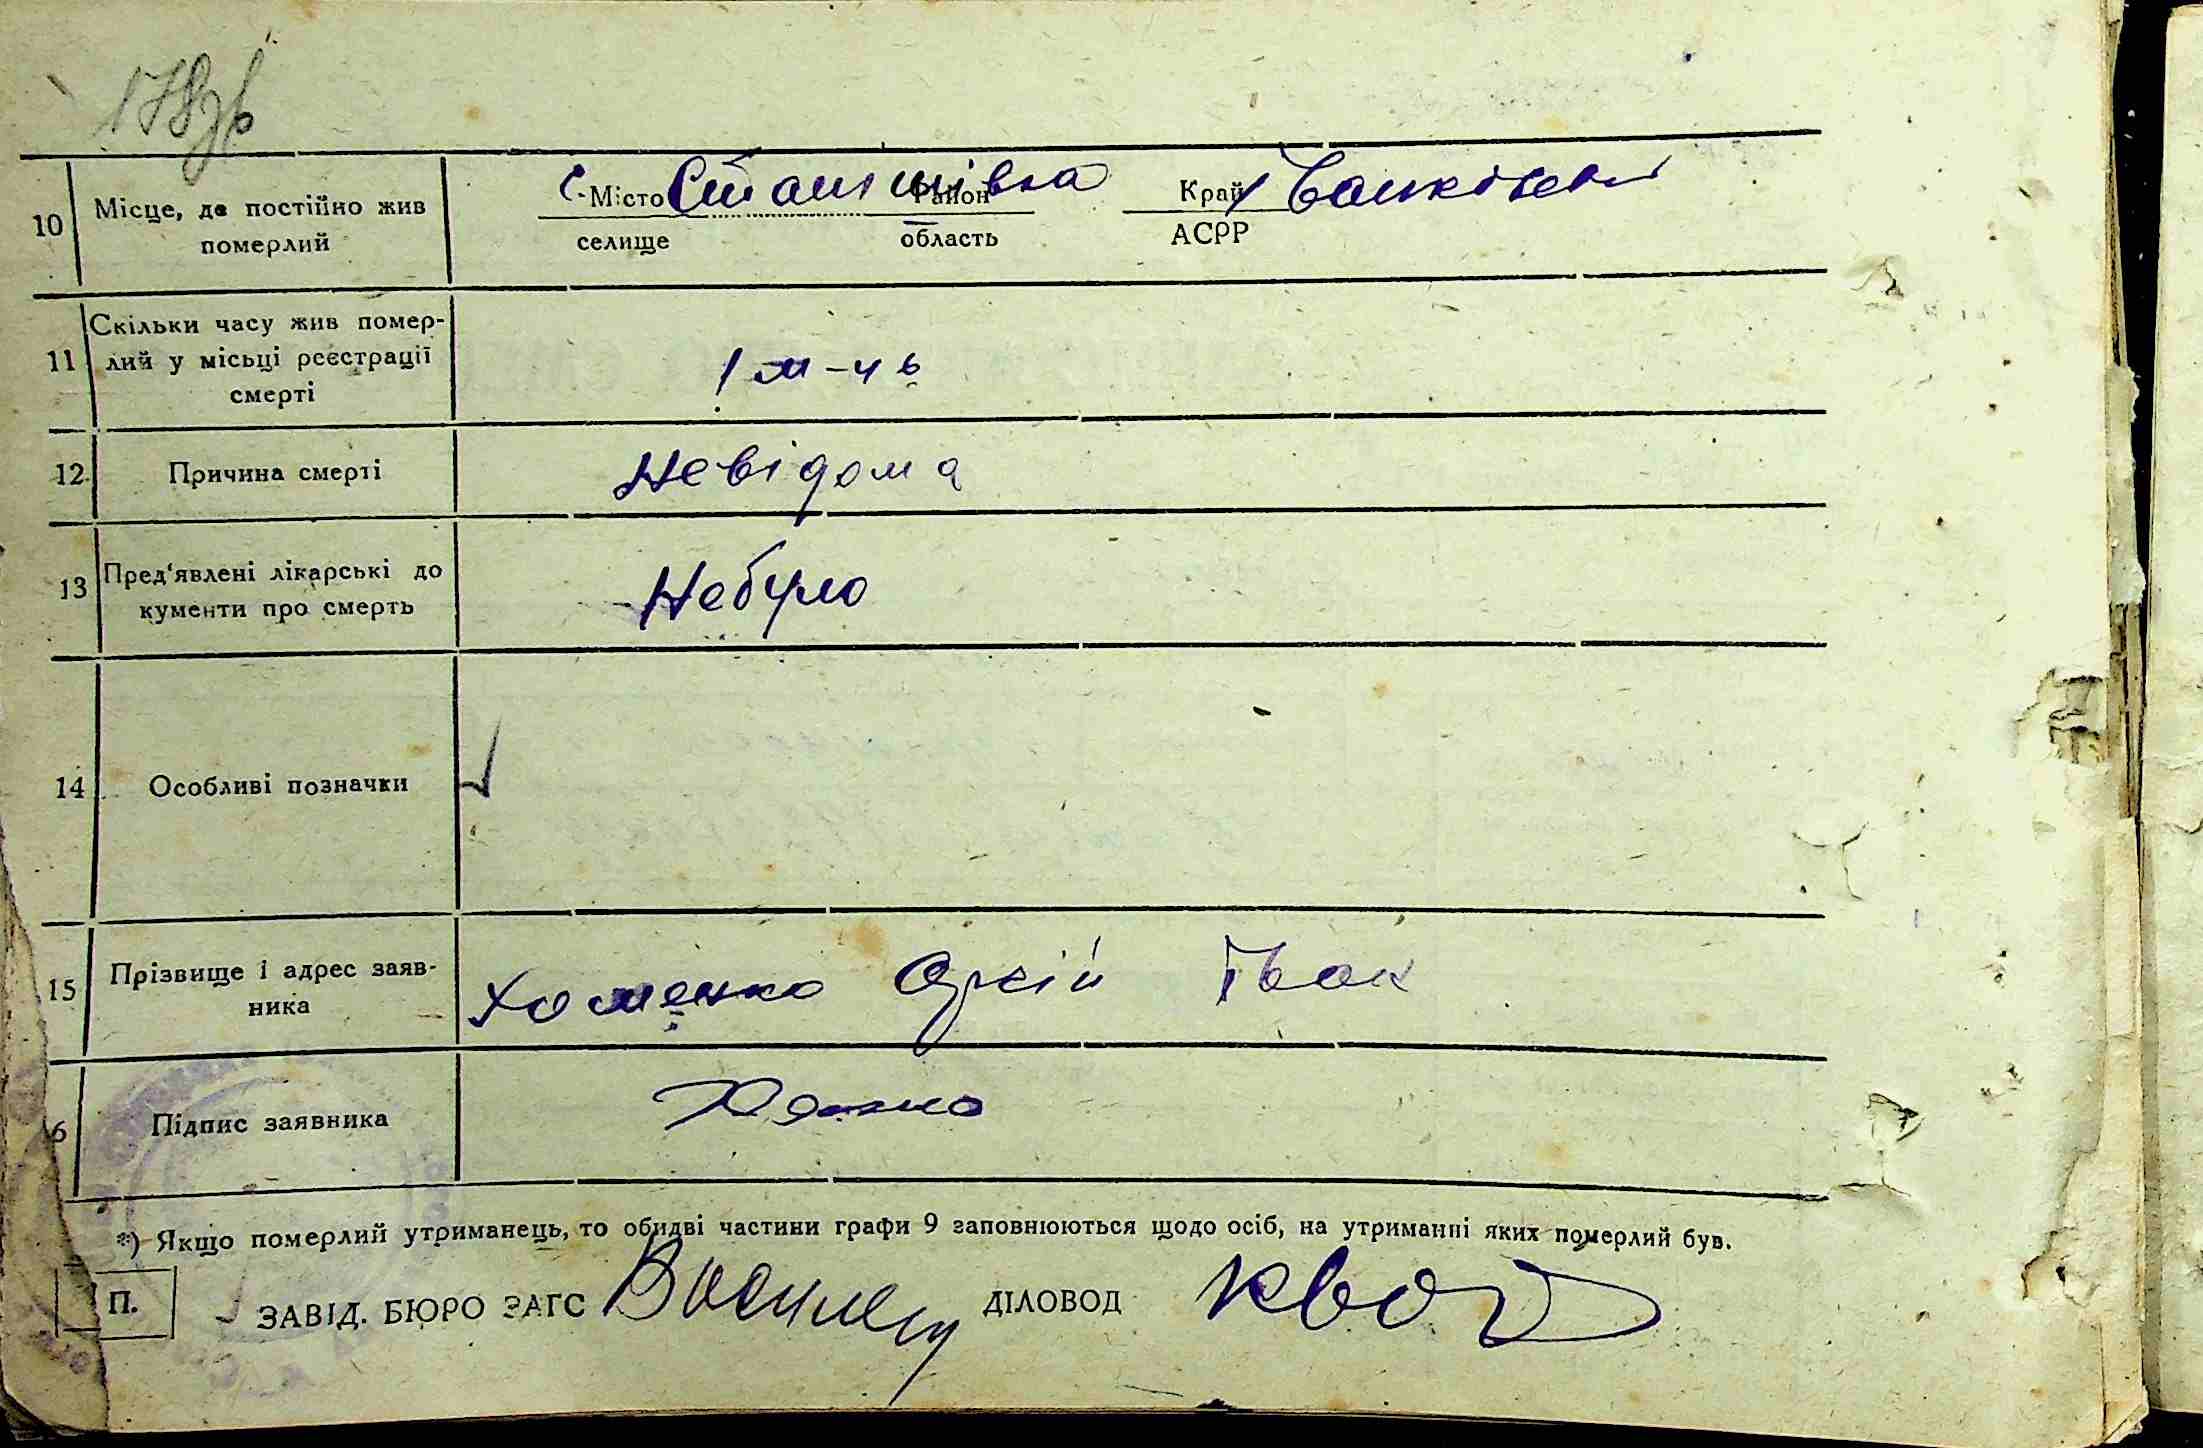 178
10 Місце, де постійно жив померлий
с. Станишівка
Місто Район Край
селище область АСРР
11 Скільки часу жив помер-
лий у місьці реєстрації
смерті
1 м-ць
12 Причина смерті
Невідома
13 Пред'явлені лікарські до
кументи про смерть
Небуло
14 Особливі позначки
15 Прізвище і адрес заяв-
ника
Хоменко Івак
6 Підпис заявника
*) Якщо померлий утриманець, то обидві частини графи 9 заповнюються щодо осіб, на утриманні яких померлий був.
П. ЗАВІД. БЮРО ЗАГС ДІЛОВОД